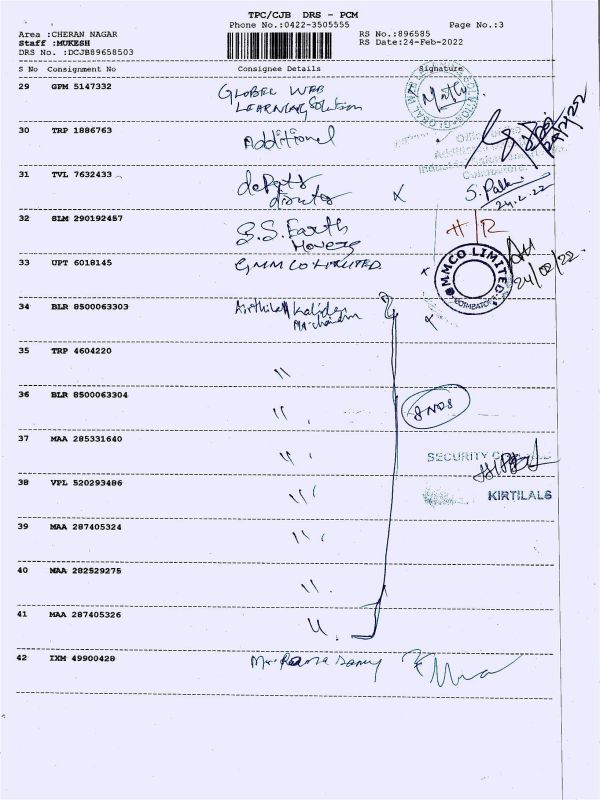 TPC/CJB DRS - PCM
Phone No.:0422-3505555 Page No.:3
Area :CHERAN NAGAR RS No.:896585
Staff :MUKESH RS Date:24-Feb-2022
DRS No. :DCJB89658503
S No Consignment No Consignee Details Signature
29 GPM 5147332 GLOBEL WEB
LEARNING Solution
30 TRP 1886763 Additional
31 TVL 7632433
S. Palani
24.2.22
32 SLM 290192457 S.S. Earth
Movers
H/R
33 UPT 6018145 GMM CO LIMITED
MMCO LIMITED
COIMBATORE
24/02/22
34 BLR 8500063303
35 TRP 4604220 "
36 BLR 8500063304 "
8 NOS
37 MAA 285331640 "
SECURITY
38 VPL 520293486 "
KIRTILALS
39 MAA 287405324 "
40 MAA 282529275 "
41 MAA 287405326 "
42 IXM 49900428